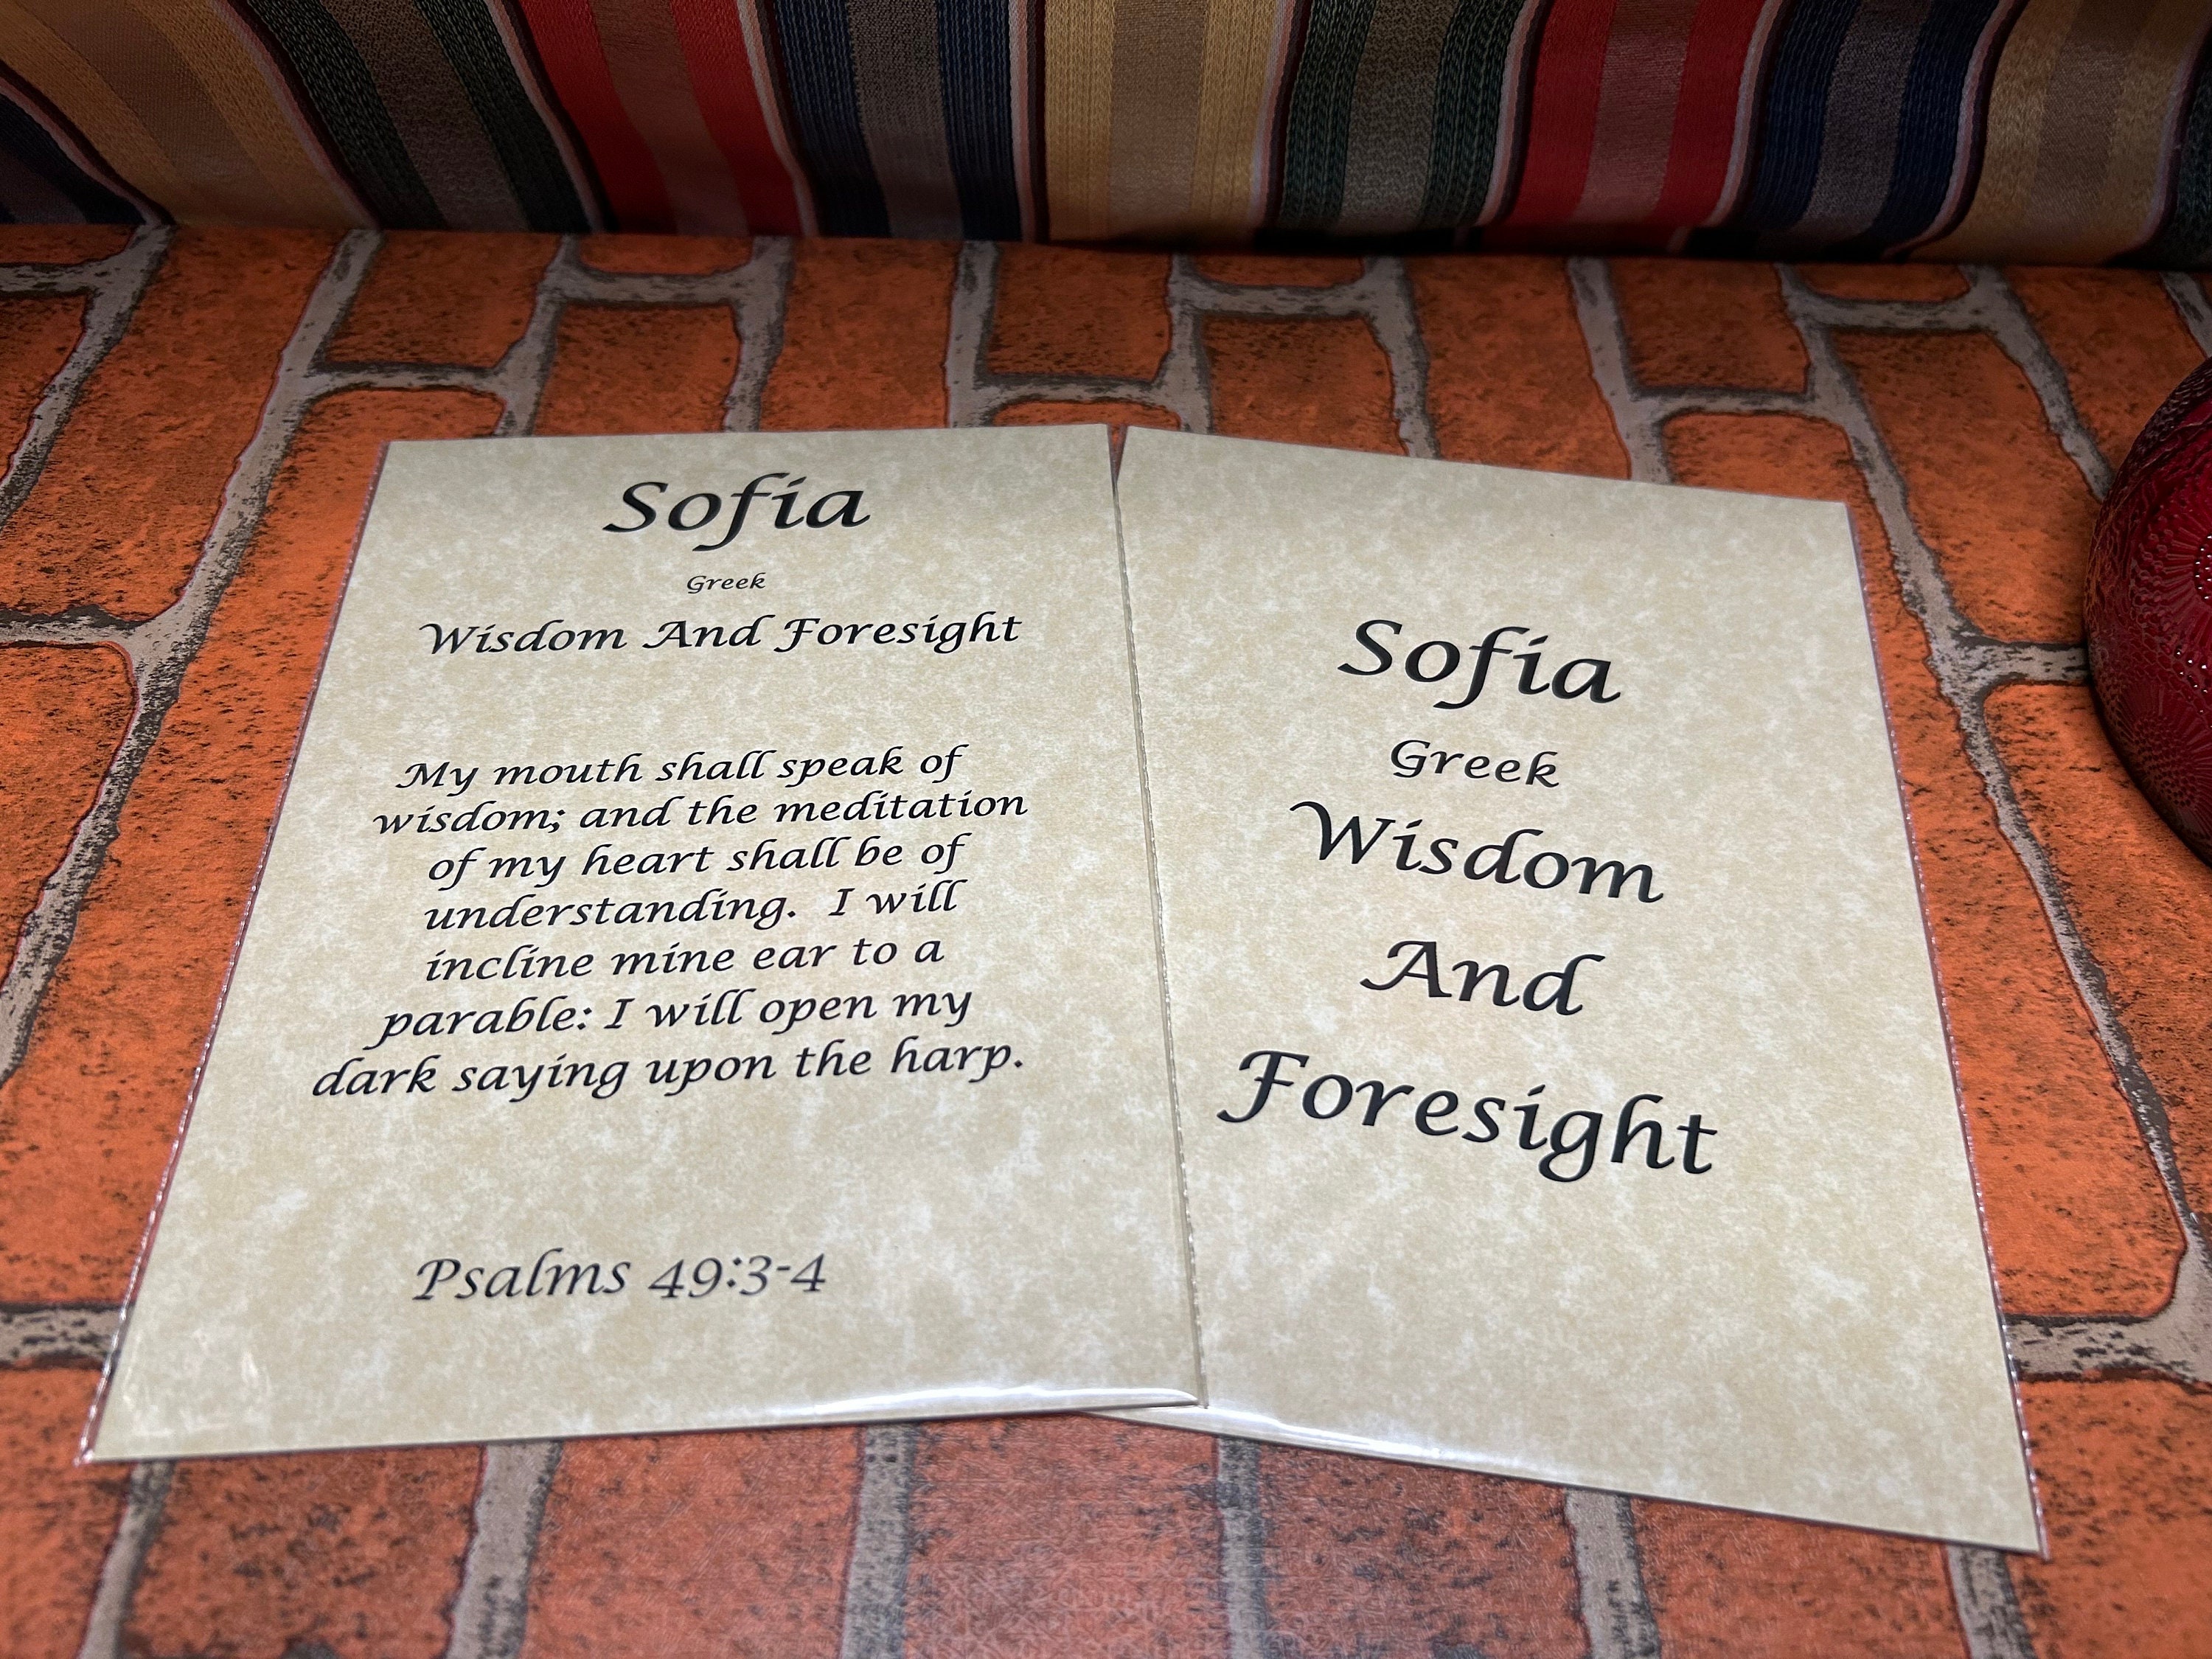 Sofia
Greek
Wisdom And Foresight
My mouth shall speak of
wisdom; and the meditation
of my heart shall be of
understanding.  I will
incline mine ear to a
parable: I will open my
dark saying upon the harp.
Psalms 49:3-4
Sofia
Greek
Wisdom
And
Foresight